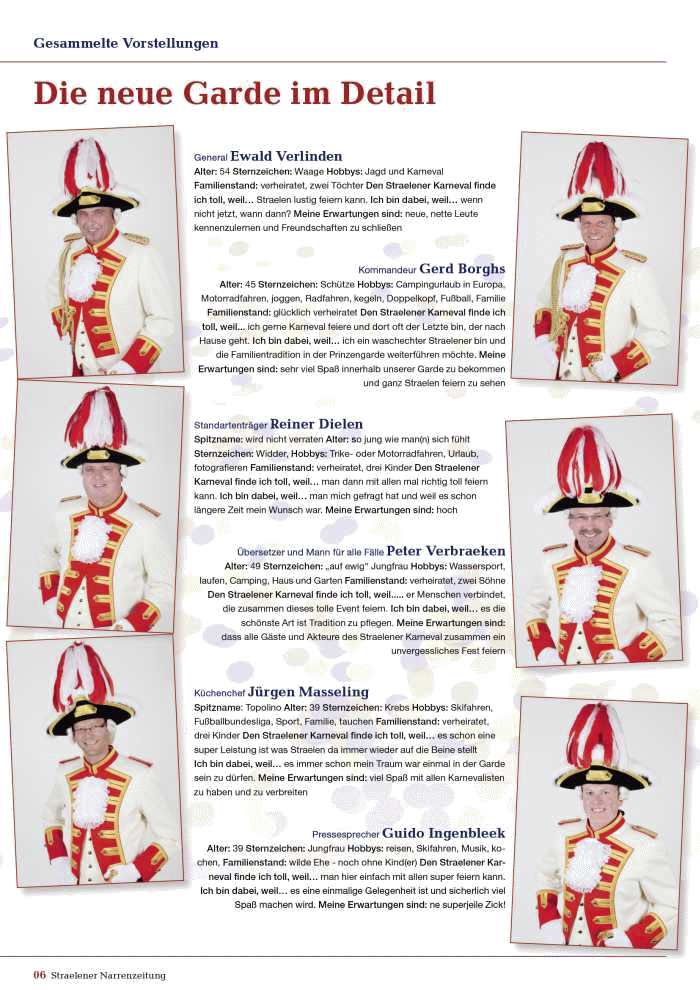 Gesammelte Vorstellungen
Die neue Garde im Detail
General Ewald Verlinden
Alter: 54 Sternzeichen: Waage Hobbys: Jagd und Karneval
Familienstand: verheiratet, zwei Töchter Den Straelener Karneval finde
ich toll, weil… Straelen lustig feiern kann. Ich bin dabei, weil… wenn
nicht jetzt, wann dann? Meine Erwartungen sind: neue, nette Leute
kennenzulernen und Freundschaften zu schließen
Kommandeur Gerd Borghs
Alter: 45 Sternzeichen: Schütze Hobbys: Campingurlaub in Europa,
Motorradfahren, joggen, Radfahren, kegeln, Doppelkopf, Fußball, Familie
Familienstand: glücklich verheiratet Den Straelener Karneval finde ich
toll, weil... ich gerne Karneval feiere und dort oft der Letzte bin, der nach
Hause geht. Ich bin dabei, weil… ich ein waschechter Straelener bin und
die Familientradition in der Prinzengarde weiterführen möchte. Meine
Erwartungen sind: sehr viel Spaß innerhalb unserer Garde zu bekommen
und ganz Straelen feiern zu sehen
Standartenträger Reiner Dielen
Spitzname: wird nicht verraten Alter: so jung wie man(n) sich fühlt
Sternzeichen: Widder, Hobbys: Trike- oder Motorradfahren, Urlaub,
fotografieren Familienstand: verheiratet, drei Kinder Den Straelener
Karneval finde ich toll, weil… man dann mit allen mal richtig toll feiern
kann. Ich bin dabei, weil… man mich gefragt hat und weil es schon
längere Zeit mein Wunsch war. Meine Erwartungen sind: hoch
Übersetzer und Mann für alle Fälle Peter Verbraeken
Alter: 49 Sternzeichen: „auf ewig“ Jungfrau Hobbys: Wassersport,
laufen, Camping, Haus und Garten Familienstand: verheiratet, zwei Söhne
Den Straelener Karneval finde ich toll, weil..... er Menschen verbindet,
die zusammen dieses tolle Event feiern. Ich bin dabei, weil… es die
schönste Art ist Tradition zu pflegen. Meine Erwartungen sind:
dass alle Gäste und Akteure des Straelener Karneval zusammen ein
unvergessliches Fest feiern
Küchenchef Jürgen Masseling
Spitzname: Topolino Alter: 39 Sternzeichen: Krebs Hobbys: Skifahren,
Fußballbundesliga, Sport, Familie, tauchen Familienstand: verheiratet,
drei Kinder Den Straelener Karneval finde ich toll, weil… es schon eine
super Leistung ist was Straelen da immer wieder auf die Beine stellt
Ich bin dabei, weil… es immer schon mein Traum war einmal in der Garde
sein zu dürfen. Meine Erwartungen sind: viel Spaß mit allen Karnevalisten
zu haben und zu verbreiten
Pressesprecher Guido Ingenbleek
Alter: 39 Sternzeichen: Jungfrau Hobbys: reisen, Skifahren, Musik, ko-
chen, Familienstand: wilde Ehe - noch ohne Kind(er) Den Straelener Kar-
neval finde ich toll, weil… man hier einfach mit allen super feiern kann.
Ich bin dabei, weil… es eine einmalige Gelegenheit ist und sicherlich viel
Spaß machen wird. Meine Erwartungen sind: ne superjeile Zick!
06 Straelener Narrenzeitung